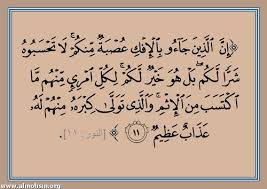 ﴿إِنَّ الَّذِينَ جَاءُو بِالْإِفْكِ عُصْبَةٌ مِّنكُمْ ۚ لَا تَحْسَبُوهُ
شَرًّا لَّكُم ۖ بَلْ هُوَ خَيْرٌ لَّكُمْ ۚ لِكُلِّ امْرِئٍ مِّنْهُم مَّا
اكْتَسَبَ مِنَ الْإِثْمِ ۚ وَالَّذِي تَوَلَّىٰ كِبْرَهُ مِنْهُمْ لَهُ
عَذَابٌ عَظِيمٌ ۝١١﴾ [النور: ١١].
www.almohsin.org